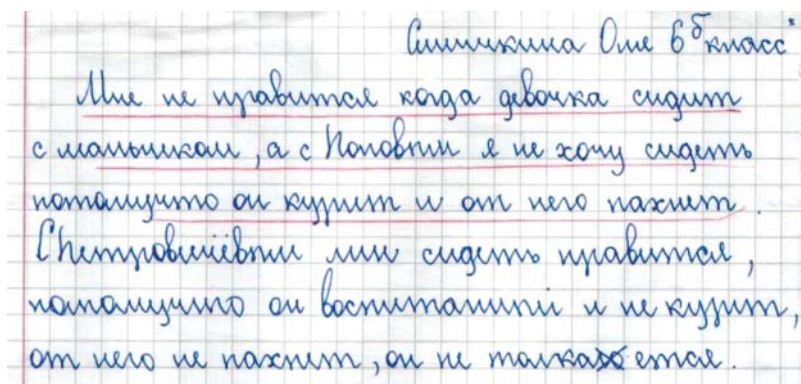 Синичкина Оля 6б класс
Мне не нравится когда девочка сидит
с мальчиком, а с Поповым я не хочу сидеть
потамучто он курит и от него пахнет.
С мне сидеть нравится,
патамучто он воспитаный и не курит,
от него не пахнет, он не толкается.